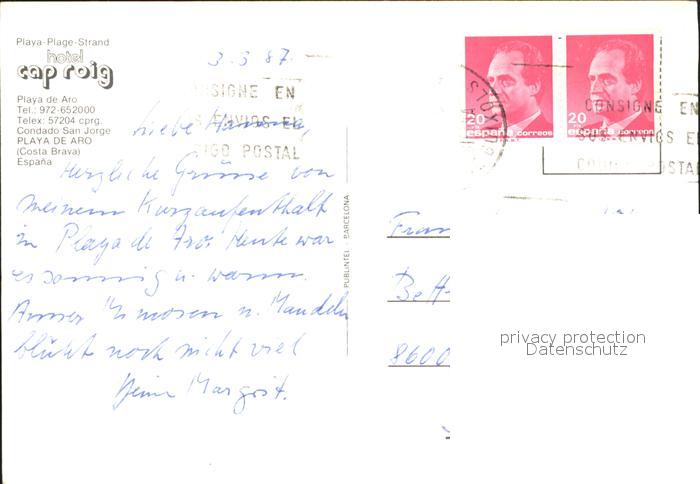 Playa-Plage-Strand
hotel
cap roig
Playa de Aro
Tel.: 972-652000
Telex: 57204 cprg.
Condado San Jorge
PLAYA DE ARO
(Costa Brava)
España
3.3.87.
SIGNE EN
S ENVIOS EL
IGO POSTAL
Liebe
Herzliche Grüsse von
meinem Kurzaufenthalt
in Playa de Aro. Heute war
es sonnig u. warm.
Ausser Mimosen u. Mandeln
blüht noch nicht viel
Deine Margrit.
PUBLINTEL - BARCELONA
20 españa correos
20 españa correos
CONSIGNE EN
SUS ENVIOS EL
CODIGO POSTAL
Frau
8600
privacy protection
Datenschutz